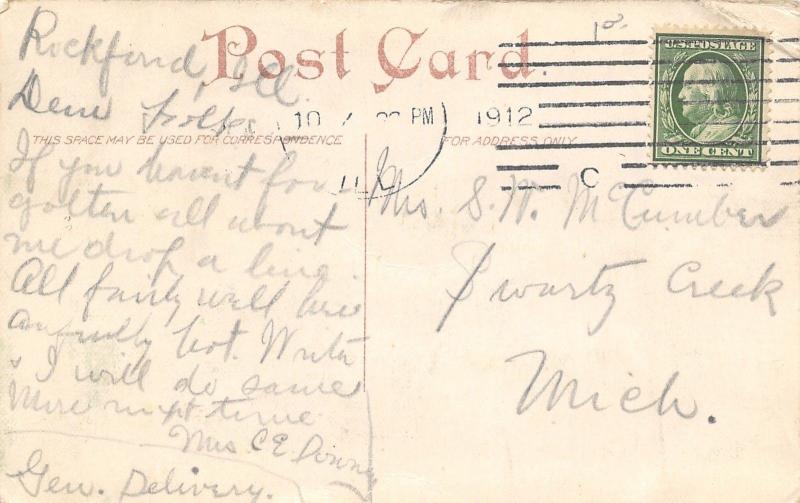 Post Card.
THIS SPACE MAY BE USED FOR CORRESPONDENCE
FOR ADDRESS ONLY.
Rockford, Ill.
Dear Folks
If you havent for-
gotten all about
me drop a line.
All fairly well here
awfully hot. Write
& I will do same
More next time
Mrs C E Downey
Gen. Delivery.
10 PM 1912
ILL
C
U.S. POSTAGE
ONE CENT
Mrs. S. W. McCumber
Swartz Creek
Mich.